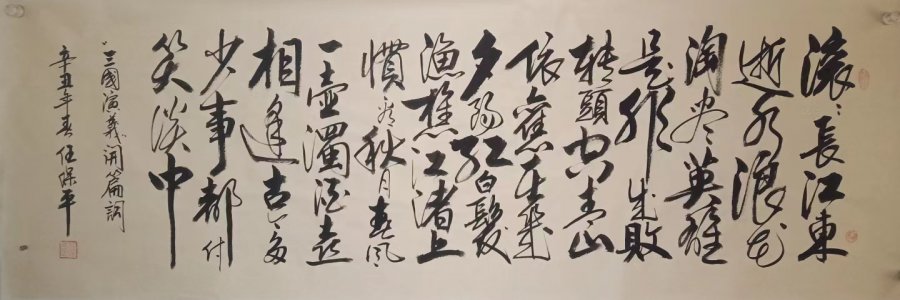 滚〻長江東
逝水浪花
淘尽英雄
是非成敗
转頭空青山
依舊在幾
夕阳红白髮
漁樵江渚上
慣看秋月春风
一壶濁酒喜
相逢古今多
少事都付
笑淡中
"三國演義"開篇詞
辛丑年春任保平